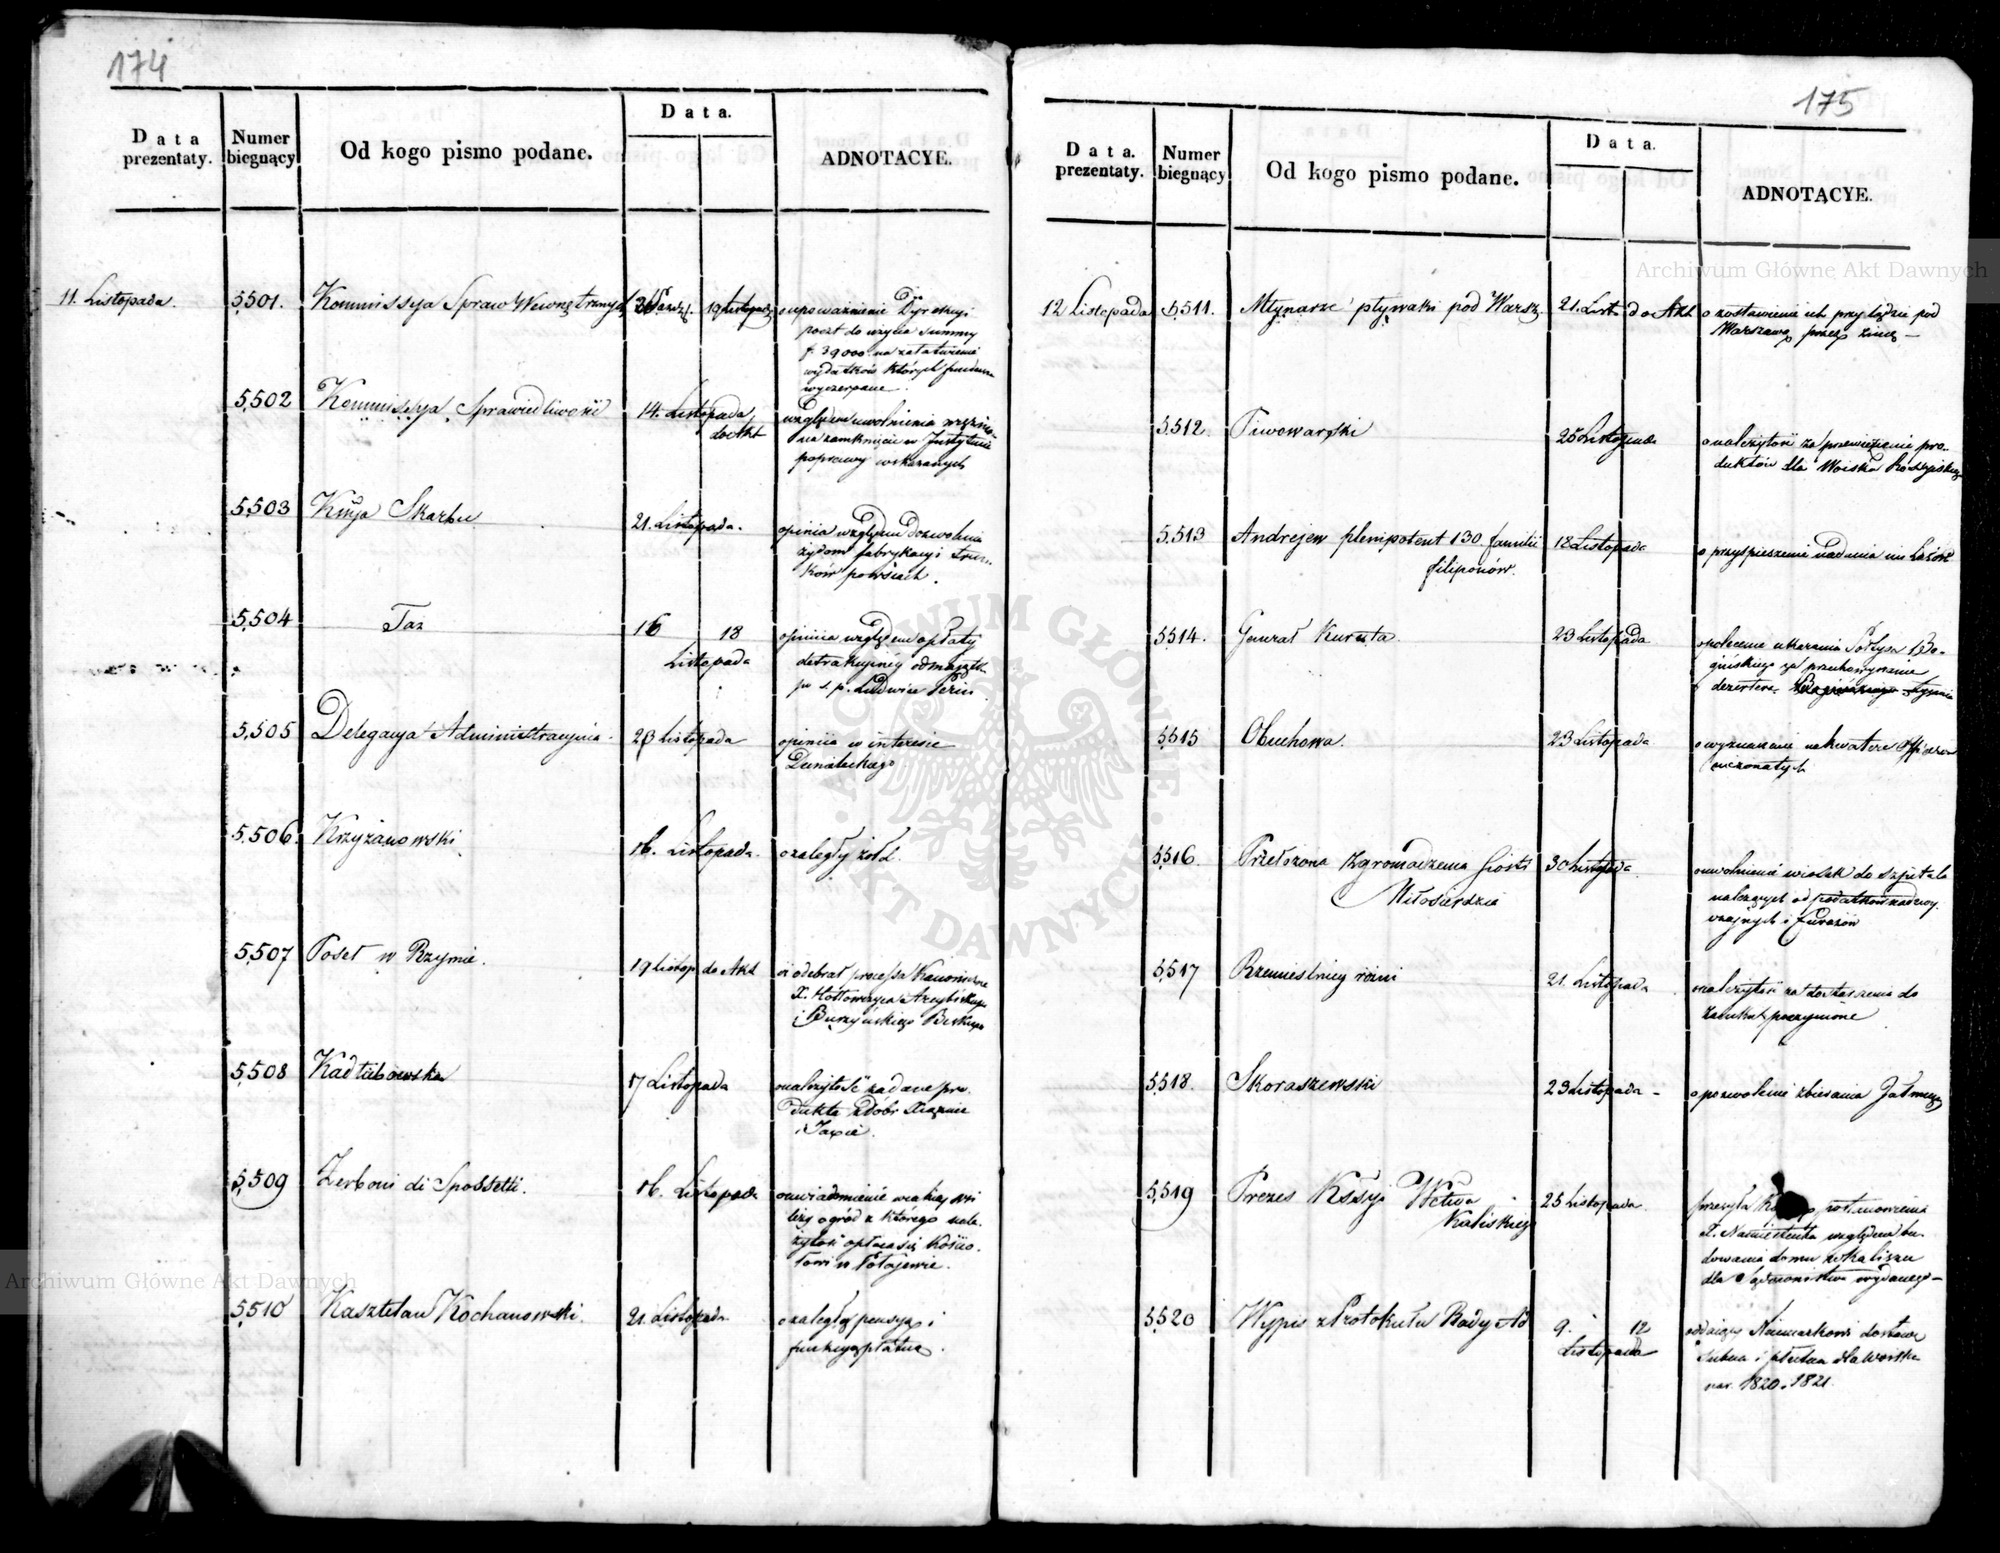 174
Data prezentaty.
Numer biegnący
Od kogo pismo podane.
Data.
ADNOTACYE.
11. Listopada.
5501.
Kommissya Spraw Wewnętrznych
19 Listopada
o upoważnienie Dyrekcyi
poczt do wzięcia Summy
f. 39000 na załatwienie
wydatków których fundusz
wyczerpane
5502
Kommissya Sprawiedliwości
14. Listopada
do Akt
względem uwolnienia
na zamknięcie w Instytucie
poprawy wskazanych
5503
Kssya Skarbu
21. Listopada.
opinia względem dozwolenia
żydom fabrykacyi trun-
ków po wsiach.
5504
Taż
16
18
Listopada
opinia względem opłaty
detrakcyinéy od majątk.
po ś. p. Ludwice
5505
Delegacya Administracyjna
23 Listopada
opinia w interesie
Dunaleckiego
5506.
Krzyżanowski
16. Listopada.
o zaległy żołd.
5507
Poseł w Rzymie.
19 Listop. do Akt
iż odebrał processa Kanoniczne
X. Hołłowczyca Arcybiskupa
i Burzyńskiego Biskupa
5508
Kadłubowska
17 Listopada
o należytość za dane pro-
dukta z dóbr
5509
Zerboni di Sposetti.
16. Listopada
o uwiadomienie w iakiey wsi
leży ogród z którego nale-
żytość opłaca się Kościo-
łowi w Połajewie.
5510
Kasztelan Kochanowski.
21. Listopada
o zaległą pensyą i
funkcyą płatną.
175
Data. prezentaty.
Numer biegnący
Od kogo pismo podane.
Data.
ADNOTACYE.
12 Listopada
5511.
Młynarze pływaki pod Warsz.
21. List. do Akt
o zostawienie ich przy lądzie pod
Warszawą przez zimę —
5512.
Piwowarski
25 Listopada
o należytość za przewiezienie pro-
duktów dla Woiska Rossyiskiego
5513
Andrejew plenipotent 130 familii
filiponów.
18 Listopada
o przyspieszenie nadania im
5514.
Generał Kuruta
23 Listopada
o polecenie ukarania Sołtysa
za przechowywanie
dezertera
5515
Obuchowa.
23 Listopada
o wyznaczenie na kwaterę Officerów
5516
Przełożona Zgromadzenia Siostr
Miłosierdzia
30 Listopada
o uwolnienie wiosek do szpitala
należących od podatków nadzwy-
czajnych i furażów
5517
Rzemieślnicy różni
21. Listopada
o należytość za dostarczenia do
zamku poczynione
5518.
Skoraszewski
23 Listopada —
o pozwolenie zbierania Jałmużny
5519
Prezes Kssyi Wctwa
Kaliskiego
25 Listopada
przesyła
X. Namiestnika względem bu-
dowania domu w Kaliszu
dla Sądownictwa wydanego —
5520
Wypis z Protokułu Rady Ad
9.
12
Listopada
oddaiący Naumarkowi dostawę
Sukna i płótna dla Woiska
na r. 1820. 1821.
Archiwum Główne Akt Dawnych
ARCHIWUM GŁÓWNE AKT DAWNYCH
Archiwum Główne Akt Dawnych